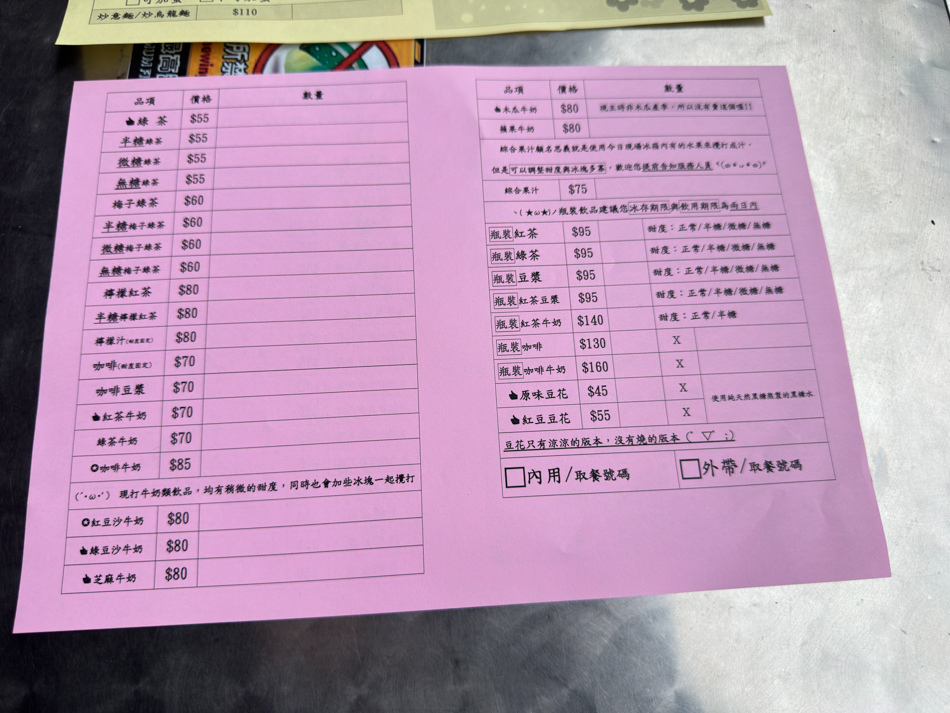 炒意麵/炒烏龍麵 $110
品項 價格 數量
綠 茶 $55
半糖綠茶 $55
微糖綠茶 $55
無糖綠茶 $55
梅子綠茶 $60
半糖梅子綠茶 $60
微糖梅子綠茶 $60
無糖梅子綠茶 $60
檸檬紅茶 $80
半糖檸檬紅茶 $80
檸檬汁(甜度固定) $80
咖啡(甜度固定) $70
咖啡豆漿 $70
紅茶牛奶 $70
綠茶牛奶 $70
✪咖啡牛奶 $85
(´･ω･`) 現打牛奶類飲品，均有稍微的甜度，同時也會加些冰塊一起攪打
✪紅豆沙牛奶 $80
綠豆沙牛奶 $80
芝麻牛奶 $80
品項 價格 數量
木瓜牛奶 $80 現主時非木瓜產季，所以沒有賣這個喔!!
蘋果牛奶 $80
綜合果汁顧名思義就是使用今日現場冰箱內有的水果來攪打成汁，
但是可以調整甜度與冰塊多寡，歡迎您提前告知服務人員
綜合果汁 $75
ヽ(★ω★)ノ瓶裝飲品建議您冰存期限與飲用期限為兩日內
瓶裝紅茶 $95 甜度：正常/半糖/微糖/無糖
瓶裝綠茶 $95 甜度：正常/半糖/微糖/無糖
瓶裝豆漿 $95 甜度：正常/半糖/微糖/無糖
瓶裝紅茶豆漿 $95 甜度：正常/半糖/微糖/無糖
瓶裝紅茶牛奶 $140 甜度：正常/半糖
瓶裝咖啡 $130 X
瓶裝咖啡牛奶 $160 X
原味豆花 $45 X 使用純天然黑糖熬製的黑糖水
紅豆豆花 $55 X
豆花只有涼涼的版本，沒有燒的版本(ˊ▽ˋ;)
□內用/取餐號碼 □外帶/取餐號碼